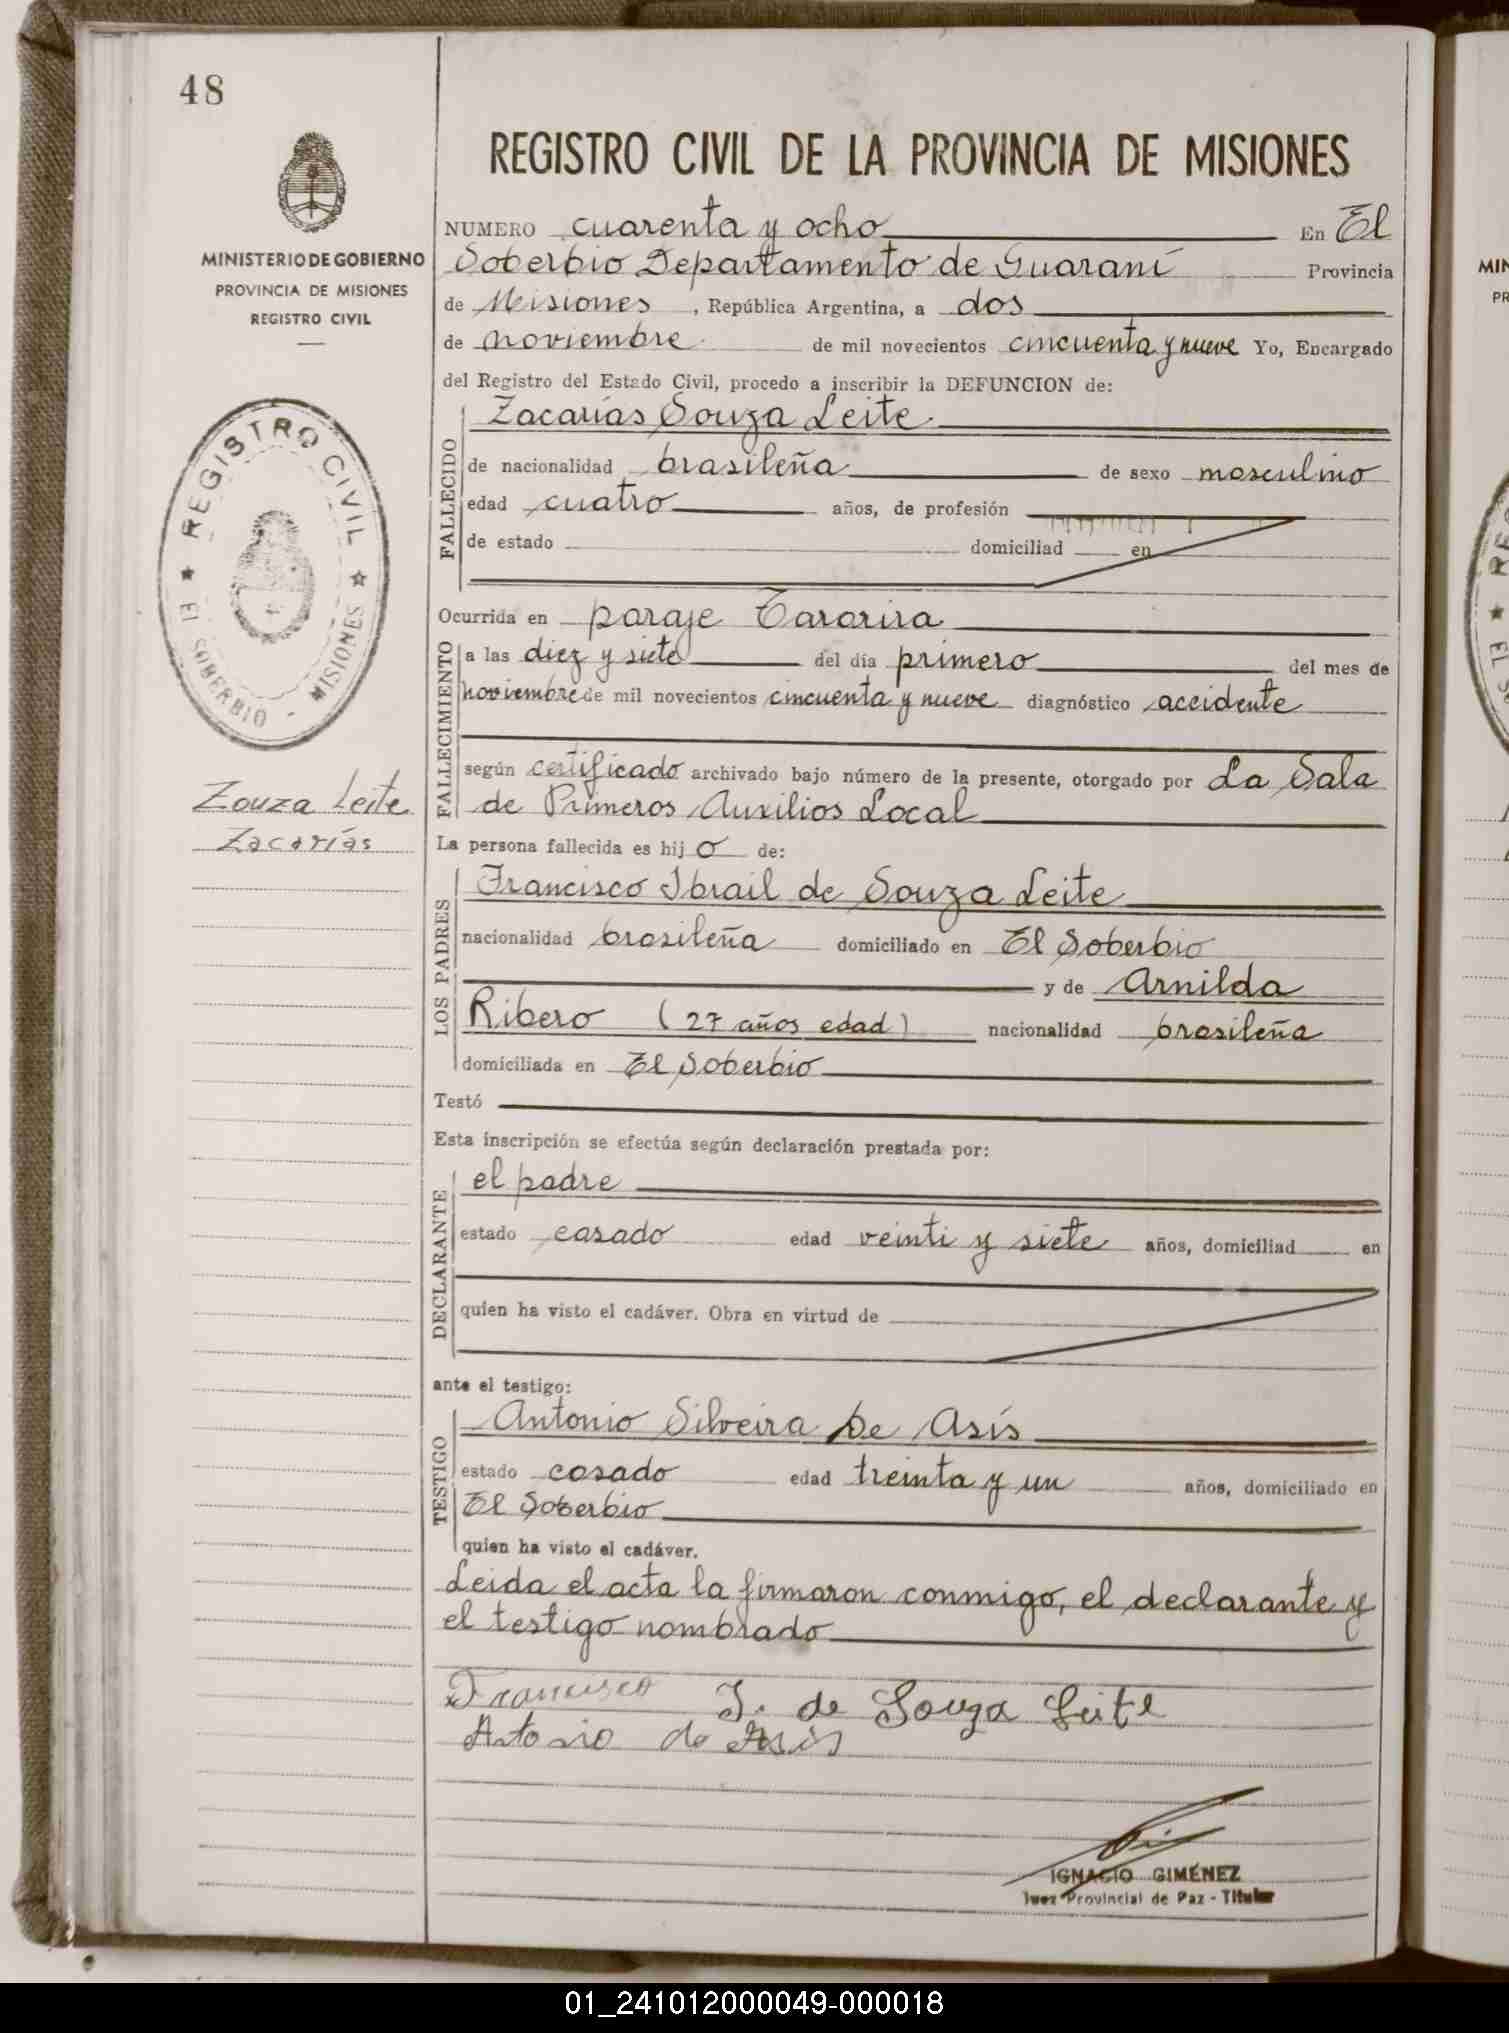 48
MINISTERIO DE GOBIERNO
PROVINCIA DE MISIONES
REGISTRO CIVIL
REGISTRO CIVIL
EL SOBERBIO - MISIONES
Zouza Leite
Zacarías
REGISTRO CIVIL DE LA PROVINCIA DE MISIONES
NUMERO cuarenta y ocho En El
Soberbio Departamento de Guaraní Provincia
de Misiones, República Argentina, a dos
de noviembre de mil novecientos cincuenta y nueve Yo, Encargado
del Registro del Estado Civil, procedo a inscribir la DEFUNCION de:
FALLECIDO
Zacarías Souza Leite
de nacionalidad brasileña de sexo masculino
edad cuatro años, de profesión
de estado domiciliad en
Ocurrida en paraje Tararira
FALLECIMIENTO
a las diez y siete del día primero del mes de
noviembre de mil novecientos cincuenta y nueve diagnóstico accidente
según certificado archivado bajo número de la presente, otorgado por La Sala
de Primeros Auxilios Local
La persona fallecida es hijo de:
LOS PADRES
Francisco Ibrail de Souza Leite
nacionalidad brasileña domiciliado en El Soberbio
y de Arnilda
Ribero (27 años edad) nacionalidad brasileña
domiciliada en El Soberbio
Testó
Esta inscripción se efectúa según declaración prestada por:
DECLARANTE
el padre
estado casado edad veinti y siete años, domiciliad en
quien ha visto el cadáver. Obra en virtud de
ante el testigo:
TESTIGO
Antonio Silveira De Asís
estado casado edad treinta y un años, domiciliado en
El Soberbio
quien ha visto el cadáver.
Leida el acta la firmaron conmigo, el declarante y
el testigo nombrado
Francisco I. de Souza Leite
Antonio de Asis
IGNACIO GIMÉNEZ
Juez Provincial de Paz - Titular
01_241012000049-000018